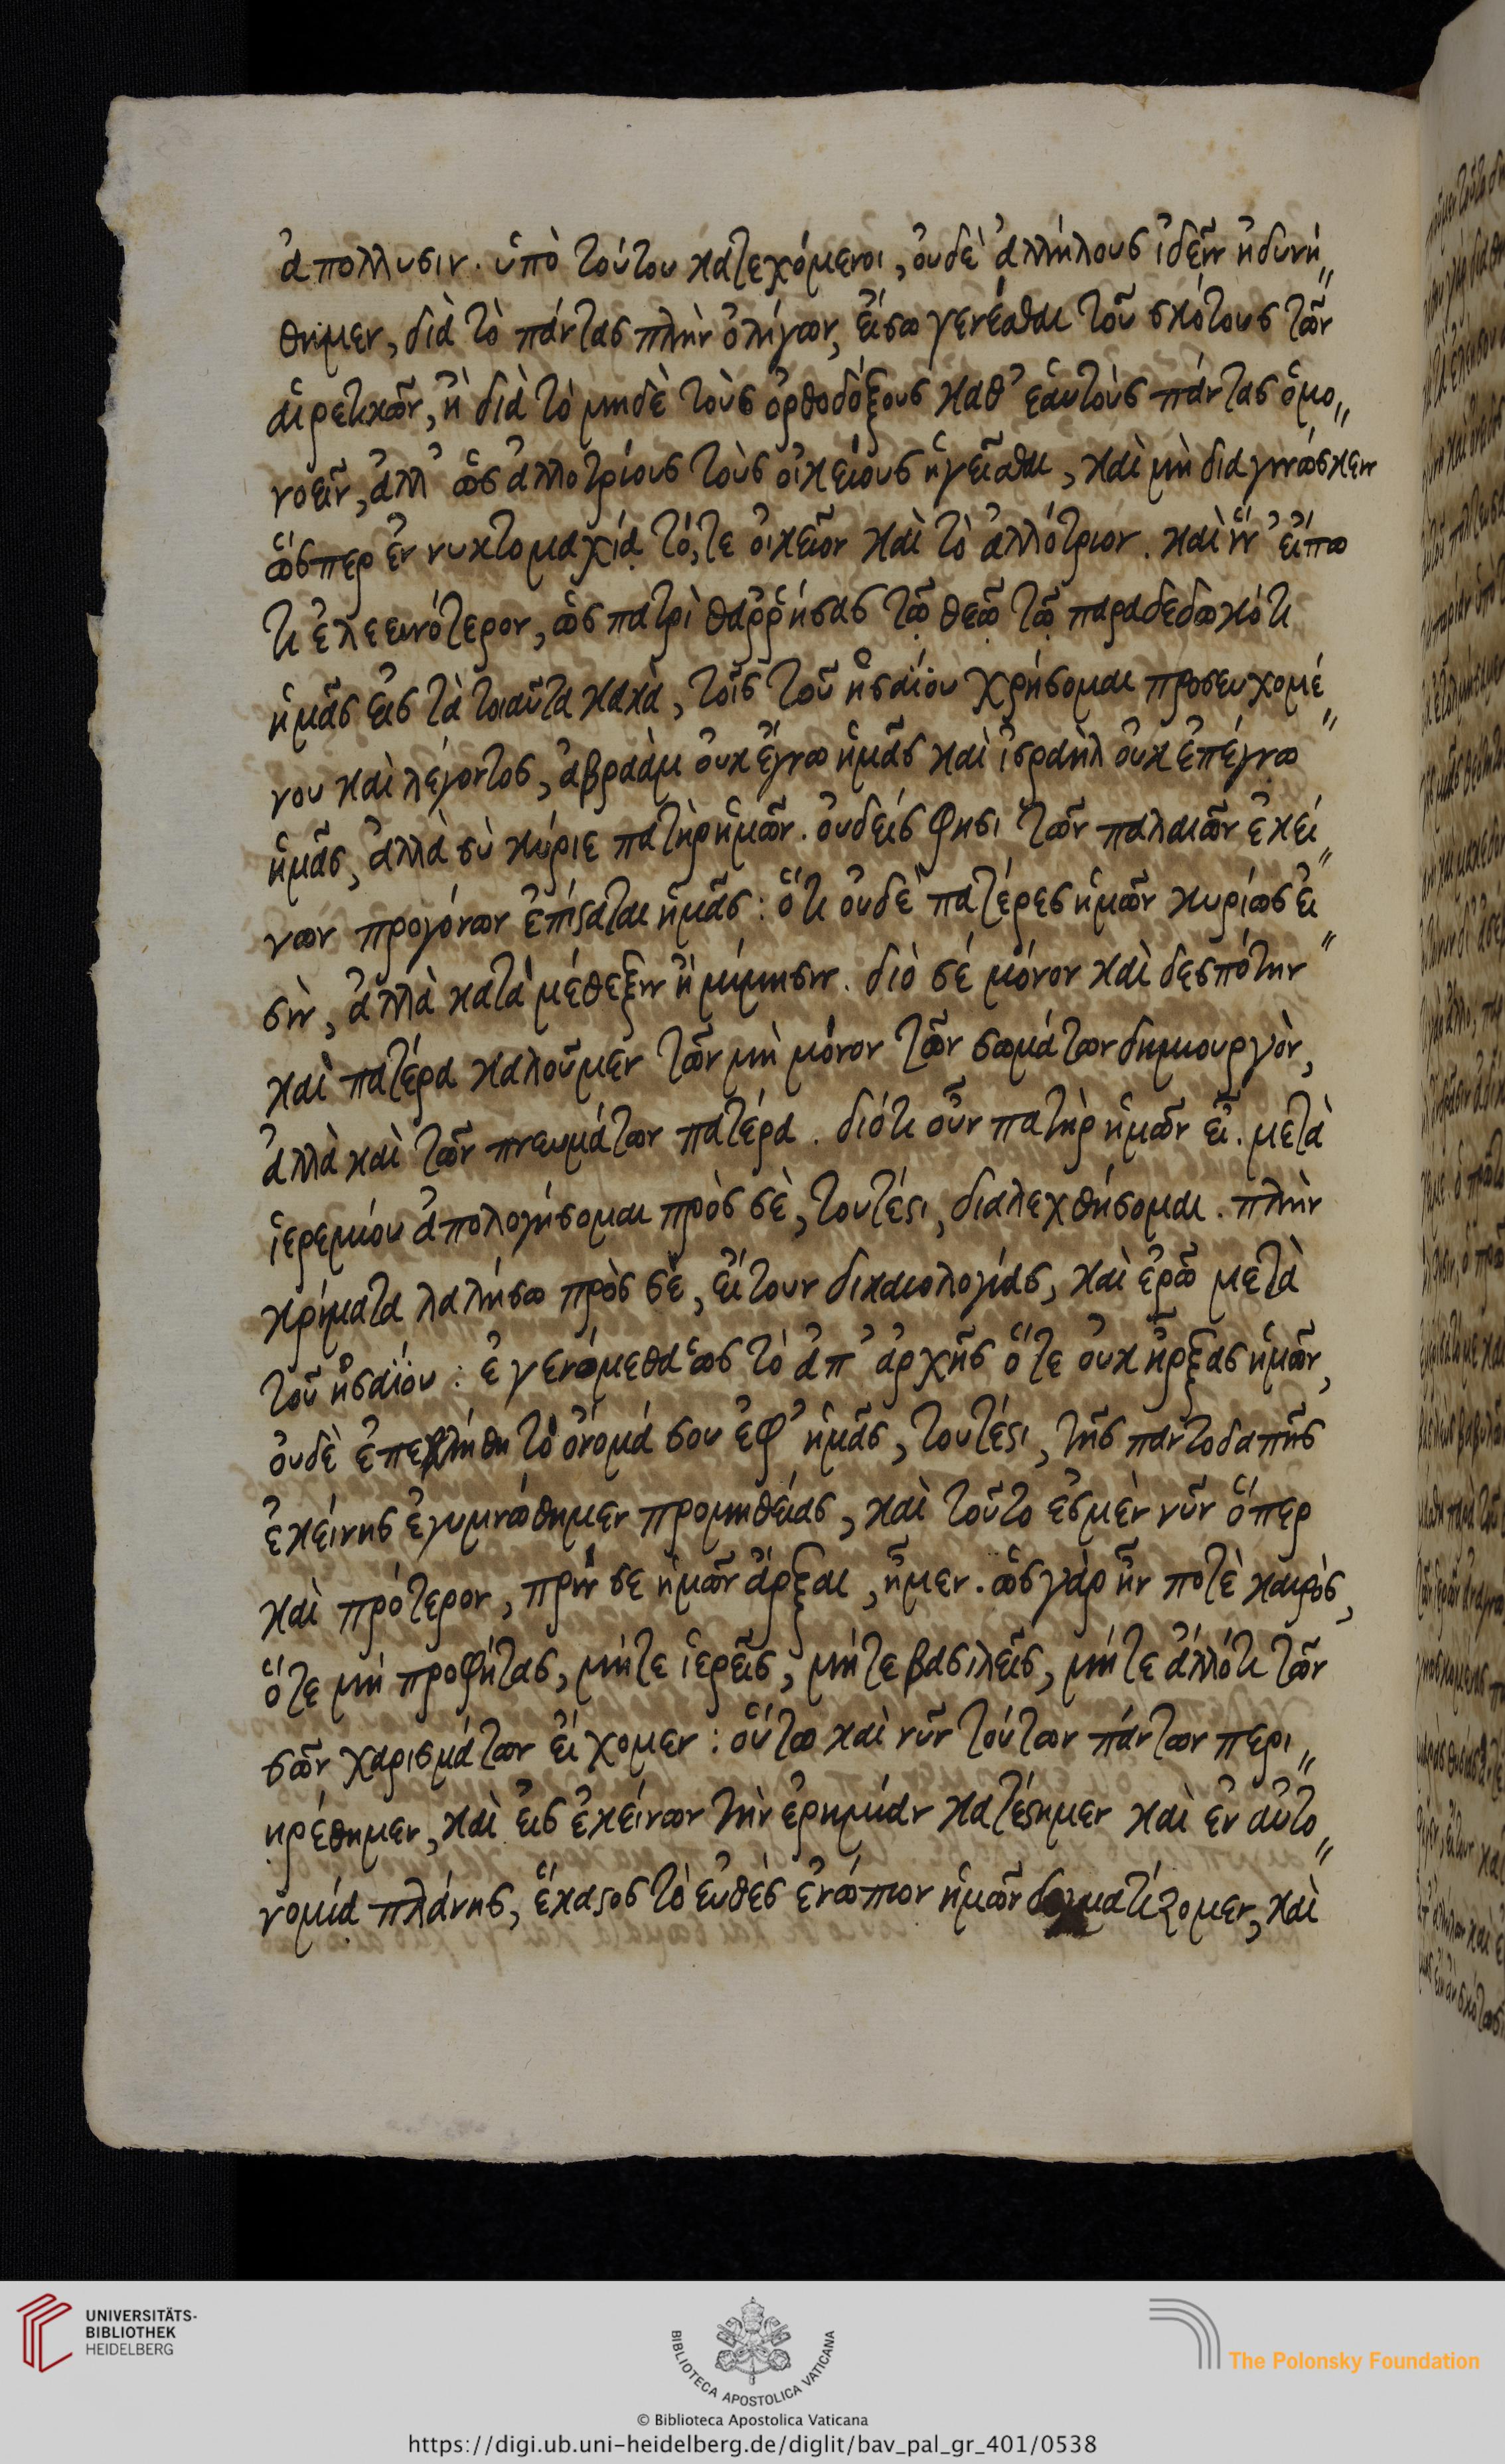 ἀπολλυσιν. ὑπὸ τούτου κατεχόμενοι, οὐδὲ ἀλλήλους ἰδεῖν ἠδυνή„
θημεν, διὰ τὸ πάντας πλὴν ὀλίγων, εἴσω γενέσθαι τοῦ σκότους τῶν
αἱρετικῶν, ἢ διὰ τὸ μηδὲ τοὺς ὀρθοδόξους καθ᾽ ἑαυτοὺς πάντας ὁμο„
νοεῖν, ἀλλ᾽ ὡς ἀλλοτρίους τοὺς οἰκείους ἡγεῖσθαι, καὶ μὴ διαγινώσκειν
ὥσπερ ἐν νυκτομαχίᾳ τό, τε οἰκεῖον καὶ τὸ ἀλλότριον. καὶ ἵν᾽ εἴπω
τι ἐλεεινότερον, ὡς πατρὶ θαῤῥήσας τῷ θεῷ τῷ παραδεδωκότι
ἡμᾶς εἰς τὰ τοιαῦτα κακὰ, τοῖς τοῦ ἡσαΐου χρήσομαι προσευχομέ„
νου καὶ λέγοντος, ἀβραὰμ οὐκ ἔγνω ἡμᾶς καὶ ἰσραὴλ οὐκ ἐπέγνω
ἡμᾶς, ἀλλὰ σὺ κύριε πατὴρ ἡμῶν. οὐδείς φησι τῶν παλαιῶν ἐκεί„
νων προγόνων ἐπίσταται ἡμᾶς: ὅτι οὐδὲ πατέρες ἡμῶν κυρίως εἰ„
σὶν, ἀλλὰ κατὰ μέθεξιν ἢ μίμησιν. διὸ σέ μόνον καὶ δεσπότην
καὶ πατέρα καλοῦμεν τῶν μὴ μόνον τῶν σωμάτων δημιουργὸν,
ἀλλὰ καὶ τῶν πνευμάτων πατέρα. διότι οὖν πατὴρ ἡμῶν εἶ. μετὰ
ἱερεμίου ἀπολογήσομαι πρὸς σὲ, τουτέστι, διαλεχθήσομαι. πλὴν
κρίματα λαλήσω πρὸς σὲ, εἴτουν δικαιολογίας, καὶ ἐρῶ μετὰ
τοῦ ἡσαΐου: ἐγενόμεθα ὡς τὸ ἀπ᾽ ἀρχῆς ὅτε οὐκ ἦρξας ἡμῶν,
οὐδὲ ἐπεκλήθη τὸ ὄνομά σου ἐφ᾽ ἡμᾶς, τουτέστι, τῆς παντοδαπῆς
ἐκείνης ἐγυμνώθημεν προμηθείας, καὶ τοῦτο ἐσμὲν νῦν ὅπερ
καὶ πρότερον, πρίν σε ἡμῶν ἄρξαι, ἦμεν. ὡς γὰρ ἦν ποτὲ καιρὸς,
ὅτε μὴ προφήτας, μήτε ἱερεῖς, μήτε βασιλεῖς, μήτε ἄλλό τι τῶν
σῶν χαρισμάτων εἴχομεν: οὕτω καὶ νῦν τούτων πάντων περι„
ῃρέθημεν, καὶ εἰς ἐκείνων τὴν ἐρημίαν κατέστημεν καὶ ἐν αὐτο„
νομίᾳ πλάνης, ἕκαστος τὸ εὐθὲς ἐνώπιον ἡμῶν δογματίζομεν, καὶ
UNIVERSITÄTS-
BIBLIOTHEK
HEIDELBERG
BIBLIOTECA APOSTOLICA VATICANA
The Polonsky Foundation
© Biblioteca Apostolica Vaticana
https://digi.ub.uni-heidelberg.de/diglit/bav_pal_gr_401/0538